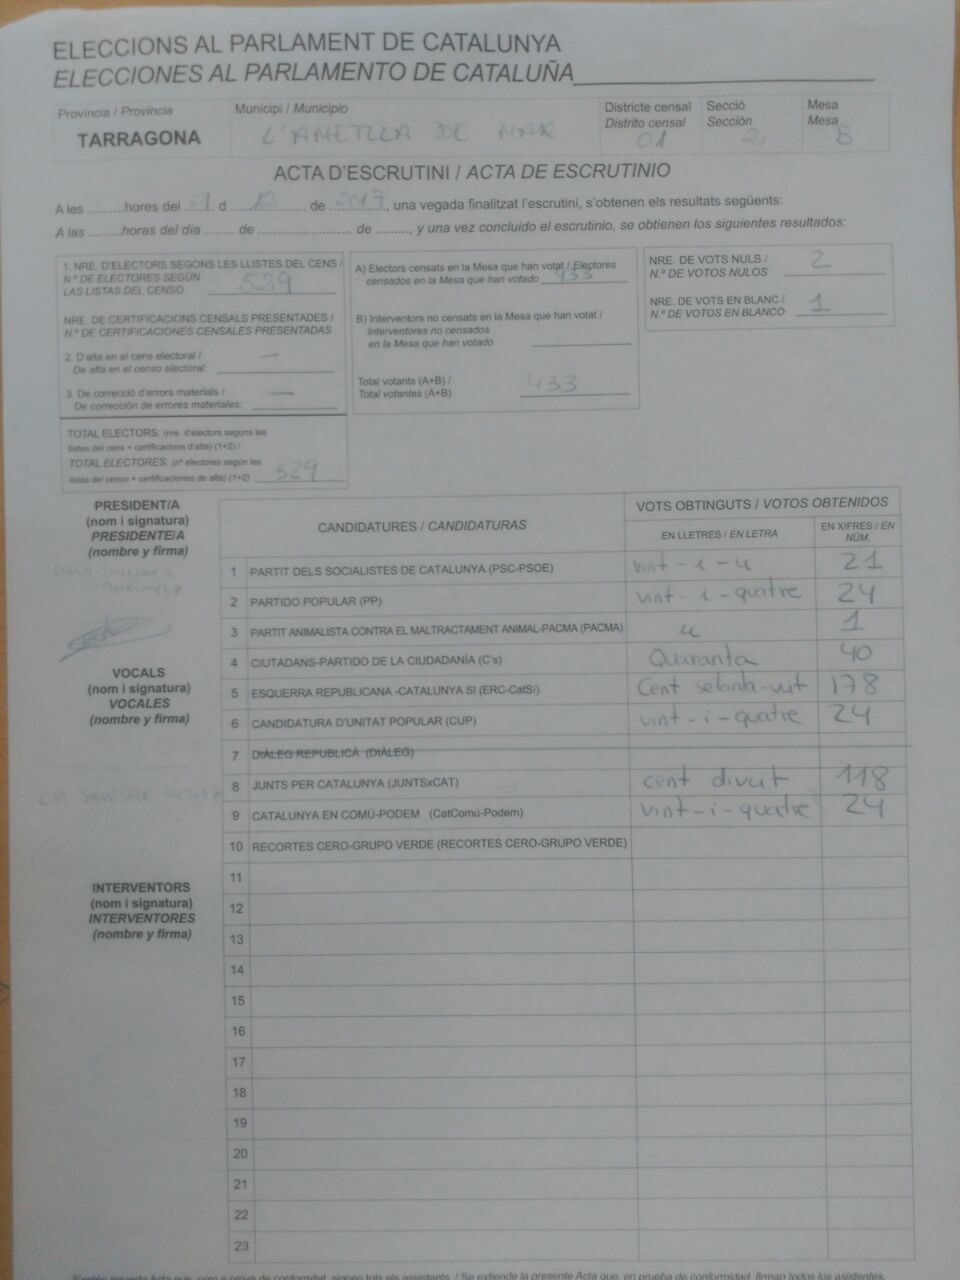 ELECCIONS AL PARLAMENT DE CATALUNYA
ELECCIONES AL PARLAMENTO DE CATALUÑA
Provincia / Provincia
TARRAGONA
Municipi / Municipio
L'AMETLLA DE MAR
Districte censal
Distrito censal
01
Secció
Sección
2
Mesa
Mesa
B
ACTA D'ESCRUTINI / ACTA DE ESCRUTINIO
A les ..........hores del 21 d 12 de 2017, una vegada finalitzat l'escrutini, s'obtenen els resultats següents:
A las ..........horas del dia ........ de .................................... de .........., y una vez concluido el escrutinio, se obtienen los siguientes resultados:
1. NRE. D'ELECTORS SEGONS LES LLISTES DEL CENS /
N.º DE ELECTORES SEGÚN
LAS LISTAS DEL CENSO 529
NRE. DE CERTIFICACIONS CENSALS PRESENTADES /
N.º DE CERTIFICACIONES CENSALES PRESENTADAS
2. D'alta en el cens electoral / —
De alta en el censo electoral:
3. De correcció d'errors materials / —
De corrección de errores materiales:
TOTAL ELECTORS: (nre. d'electors segons les
llistes del cens + certificacions d'alta) (1+2) /
TOTAL ELECTORES: (nº electores según las
listas del censo + certificaciones de alta) (1+2) 529
A) Electors censats en la Mesa que han votat / Electores
censados en la Mesa que han votado 433
B) Interventors no censats en la Mesa que han votat /
Interventores no censados
en la Mesa que han votado
Total votants (A+B) /
Total votantes (A+B) 433
NRE. DE VOTS NULS /
N.º DE VOTOS NULOS 2
NRE. DE VOTS EN BLANC /
N.º DE VOTOS EN BLANCO 1
PRESIDENT/A
(nom i signatura)
PRESIDENTE/A
(nombre y firma)
VOCALS
(nom i signatura)
VOCALES
(nombre y firma)
INTERVENTORS
(nom i signatura)
INTERVENTORES
(nombre y firma)
CANDIDATURES / CANDIDATURAS
VOTS OBTINGUTS / VOTOS OBTENIDOS
EN LLETRES / EN LETRA
EN XIFRES / EN NÚM.
1 PARTIT DELS SOCIALISTES DE CATALUNYA (PSC-PSOE) vint-i-u 21
2 PARTIDO POPULAR (PP) vint-i-quatre 24
3 PARTIT ANIMALISTA CONTRA EL MALTRACTAMENT ANIMAL-PACMA (PACMA) u 1
4 CIUTADANS-PARTIDO DE LA CIUDADANÍA (C's) Quaranta 40
5 ESQUERRA REPUBLICANA -CATALUNYA SÍ (ERC-CatSí) Cent setanta-vuit 178
6 CANDIDATURA D'UNITAT POPULAR (CUP) vint-i-quatre 24
7 DIÀLEG REPUBLICÀ (DIÀLEG)
8 JUNTS PER CATALUNYA (JUNTSxCAT) cent divuit 118
9 CATALUNYA EN COMÚ-PODEM (CatComú-Podem) vint-i-quatre 24
10 RECORTES CERO-GRUPO VERDE (RECORTES CERO-GRUPO VERDE)
11
12
13
14
15
16
17
18
19
20
21
22
23
S'estén aquesta Acta que, com a prova de conformitat, signen tots els assistents. / Se extiende la presente Acta que, en prueba de conformidad, firman todos los asistentes.